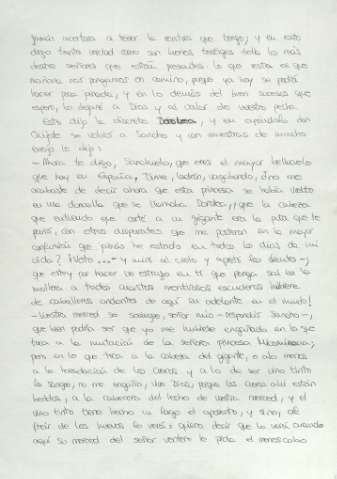 jamás acertara a tener la ventura que tengo; y en esto
digo tanta verdad como son buenos testigos della los más
destos señores que están presentes. Lo que resta es que
mañana nos pongamos en camino, porque ya hoy se podrá
hacer poca jornada, y en lo demás del buen suceso que
espero, lo dejaré a Dios y al valor de vuestro pecho.
Esto dijo la discreta Dorotea, y en oyéndolo don
Quijote se volvió a Sancho y con muestras de mucho
enojo le dijo:
- Ahora te digo, Sanchuelo, que eres el mayor bellacuelo
que hay en España. Dime, ladrón, vagabundo, ¿no me
acabaste de decir ahora que esta princesa se había vuelto
en una doncella que se llamaba Dorotea, y que la cabeza
que entiendo que corté a un gigante era la puta que te
parió, con otros disparates que me pusieron en la mayor
confusión que jamás he estado en todos los días de mi
vida? ¡Voto... - y miró al cielo y apretó los dientes -,
que estoy por hacer un estrago en ti que ponga sal en la
mollera a todos cuantos mentirosos escuderos hubiere
de caballeros andantes de aquí en adelante en el mundo!
- Vuestra merced se sosiegue, señor mío - respondió Sancho -,
que bien podría ser que yo me hubiese engañado en lo que
toca a la mutación de la señora princesa Micomicona;
pero en lo que toca a la cabeza del gigante, o a lo menos
a la horadación de los cueros y a lo de ser vino tinto
la sangre, no me engaño, vive Dios, porque los cueros allí están
heridos, a la cabecera del lecho de vuestra merced, y el
vino tinto tiene hecho un lago el aposento, y si no, al
freír de los huevos lo verá: quiero decir que lo verá cuando
aquí su merced del señor ventero le pida el menoscabo